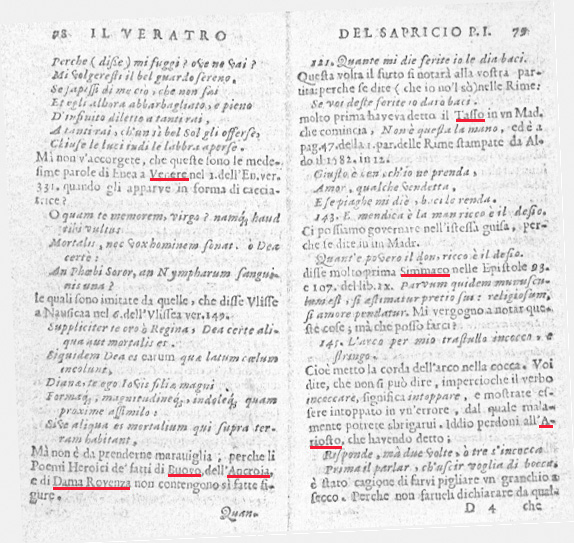 78 IL VERATRO
Perche (disse) mi fuggi? ove ne vai?
Mi volgeresti il bel guardo sereno.
Se sapessi di me ciò, che non sai
Et egli allhora abbarbagliato, e pieno
D'infinito diletto a tanti rai,
A tanti rai, ch'un sì bel Sol gli offerse,
Chiuse le luci indi le labbra aperse.
Mà non v'accorgete, che queste sono le mede-
sime parole di Enea a Venere nel 1. dell'En. ver.
331. quando gli apparve in forma di caccia-
trice?
O quam te memorem, virgo? namq; haud
tibi vultus
Mortalis, nec vox hominem sonat. ò Dea
certè:
An Phœbi Soror, an Nympharum sangui-
nis una?
le quali sono imitate da quelle, che disse Vlisse
a Nausicaa nel 6. dell'Vlissea ver. 149.
Suppliciter te oro ò Regina, Dea certe ali-
qua aut mortalis es.
Siquidem Dea es earum qua latum cœlum
incolunt,
Diana, te ego Iovis filia magni
Formaq; magnitudineq; indoleq; quam
proxime assimilo:
Sive aliqua es mortalium qui supra ter-
ram habitant,
Mà non è da prenderne maraviglia, perche li
Poemi Heroici de' fatti di Buovo, dell'Ancroia,
e di Dama Rovenza non contengono sì fatte fi-
gure.
Quan-
DEL SAPRICIO P. I. 79
121. Quante mi die ferite io le dia baci.
Questa volta il furto si notarà alla vostra par-
tita: perche se dite (che io no'l sò) nelle Rime:
Se voi deste ferite io darò baci.
molto prima haveva detto il Tasso in vn Mad.
che comincia, Non è questa la mano, ed è a
pag. 47. della 1. par. delle Rime stampate da Al-
do il 1582. in 12.
Giusto è ben ch'io ne prenda,
Amor, qualche vendetta.
E se piaghe mi diè, baci le renda.
143. E mendica è la man ricco è il desio.
Ci possiamo governare nell'istessa guisa, per-
che se dite in vn Madr.
Quant'è povero il don, ricco è il desio.
disse molto prima Simmaco nelle Epistole 93.
e 107. del lib. IX. Parvum quidem munuscu-
lum est, si æstimatur pretio sui: religiosum,
si amore pendatur. Mi vergogno a notar que-
ste cose; mà che posso farci?
145. L'arco per mio trastullo incocco, e
stringo.
Cioè metto la corda dell'arco nella cocca. Voi
dite, che non si può dire, imperciochè il verbo
incoccare, significa intoppare, e mostrate es-
sere intoppato in vn'errore, dal quale mala-
mente potrete sbrigarui. Iddio perdoni all'A-
riosto, che havendo detto;
Risponde, mà due volte, ò tre s'incocca
Prima il parlar, ch'uscir voglia di bocca.
è stato cagione di farvi pigliare vn granchio a
secco. Perche non farveli dichiarare da qual-
D 4 che